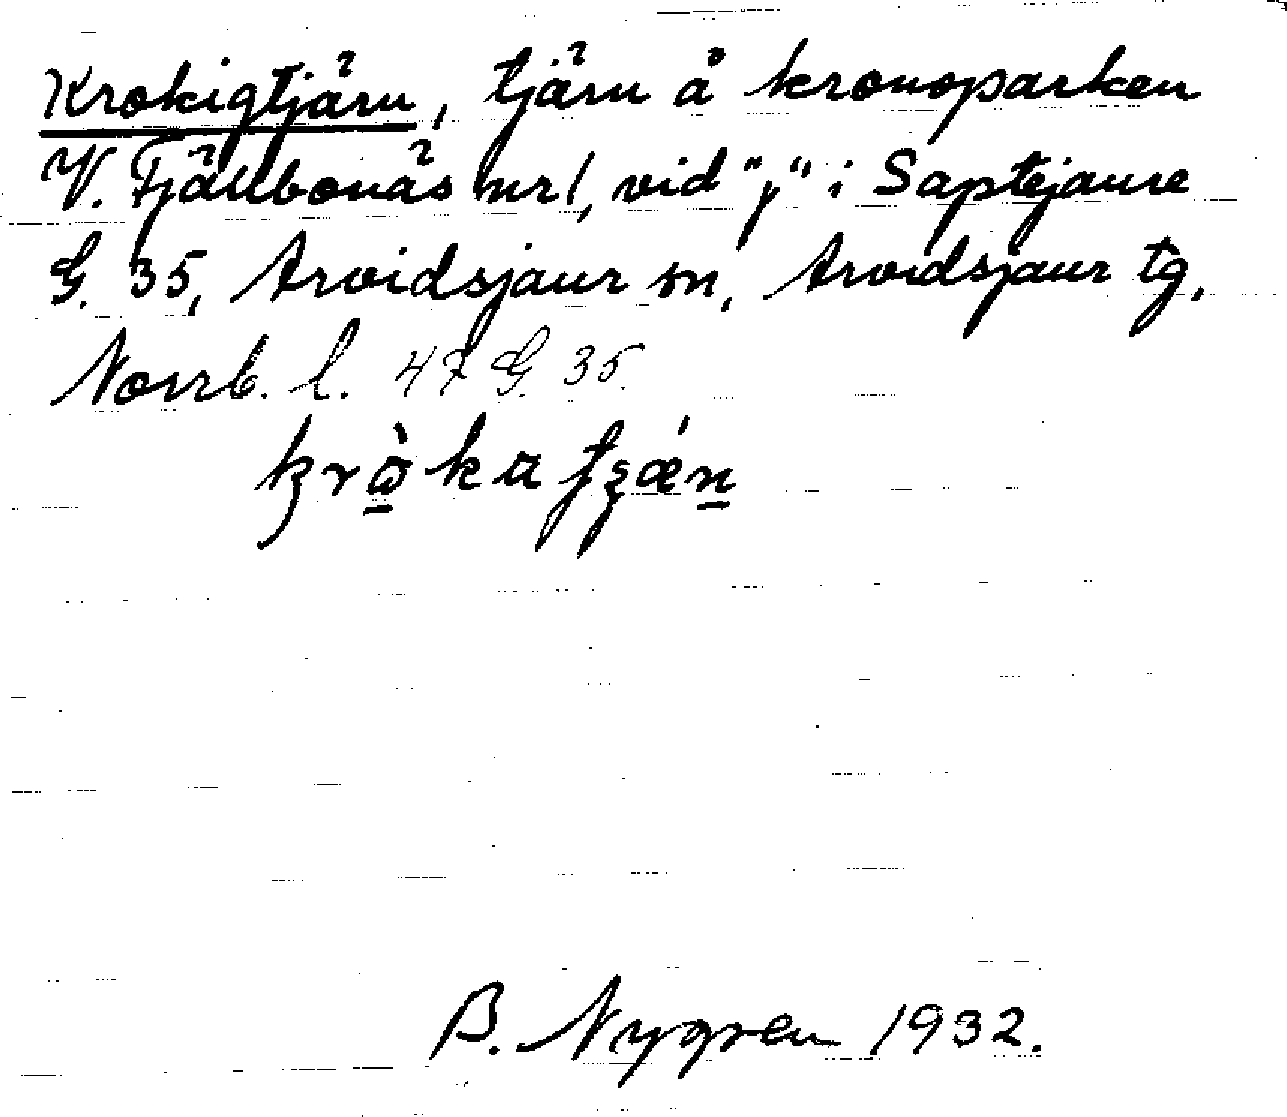 Krokigtjärn, tjärn å kronoparken
V. Fjällbonäs nr 1, vid "j" i Saptejaure
G. 35, Arvidsjaur sn, Arvidsjaur tg,
Norrb. l. 47 G. 35.
B. Nygren 1932.